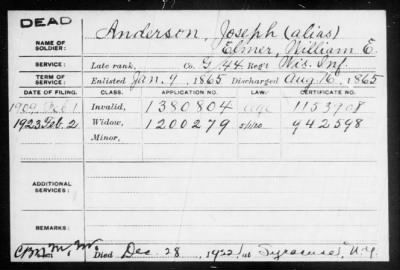 DEAD
Anderson, Joseph (alias)
NAME OF SOLDIER: Elmer, William E.
SERVICE: Late rank, Co. G, 44 Reg't Wis. Inf.
TERM OF SERVICE: Enlisted Jan. 9, 1865 Discharged Aug. 1865
DATE OF FILING. CLASS. APPLICATION NO. LAW CERTIFICATE NO.
1909 Feb 1 Invalid, 1380804 age 1153908
1923 Feb. 2 Widow, 1200279 5/1/20 942598
Minor,
ADDITIONAL SERVICES:
REMARKS:
Died Dec. 28, 1922, at Syracuse, N.Y.